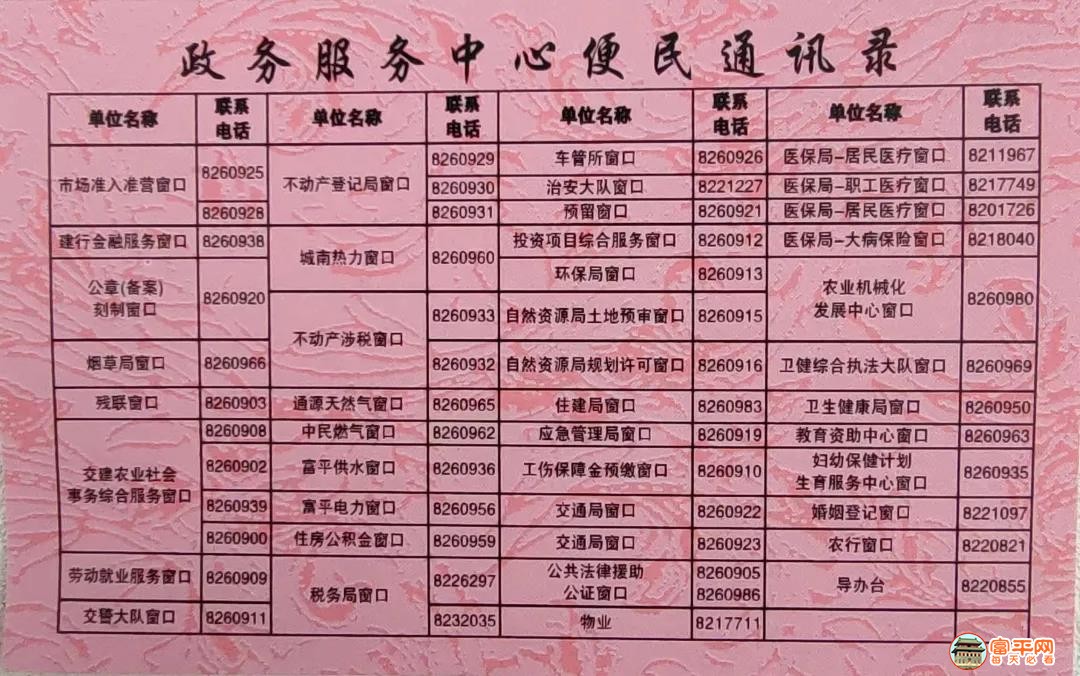 政务服务中心便民通讯录
单位名称 联系电话 单位名称 联系电话 单位名称 联系电话 单位名称 联系电话
市场准入准营窗口 8260925 不动产登记局窗口 8260929 车管所窗口 8260926 医保局-居民医疗窗口 8211967
8260930 治安大队窗口 8221227 医保局-职工医疗窗口 8217749
8260928 8260931 预留窗口 8260921 医保局-居民医疗窗口 8201726
建行金融服务窗口 8260938 城南热力窗口 8260960 投资项目综合服务窗口 8260912 医保局-大病保险窗口 8218040
环保局窗口 8260913
公章(备案)
刻制窗口 8260920 不动产涉税窗口 8260933 自然资源局土地预审窗口 8260915 农业机械化
发展中心窗口 8260980
烟草局窗口 8260966 8260932 自然资源局规划许可窗口 8260916 卫健综合执法大队窗口 8260969
残联窗口 8260903 通源天然气窗口 8260965 住建局窗口 8260983 卫生健康局窗口 8260950
交建农业社会
事务综合服务窗口 8260908 中民燃气窗口 8260962 应急管理局窗口 8260919 教育资助中心窗口 8260963
8260902 富平供水窗口 8260936 工伤保障金预缴窗口 8260910 妇幼保健计划
生育服务中心窗口 8260935
8260939 富平电力窗口 8260956 交通局窗口 8260922 婚姻登记窗口 8221097
8260900 住房公积金窗口 8260959 交通局窗口 8260923 农行窗口 8220821
劳动就业服务窗口 8260909 税务局窗口 8226297 公共法律援助 8260905
公证窗口 8260986 导办台 8220855
交警大队窗口 8260911 8232035 物业 8217711
富平网
每天必看